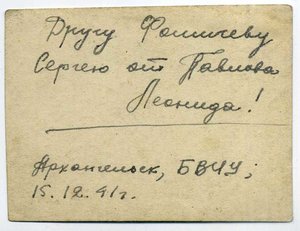 Другу Фомичеву
Сергею от Павлова
Леонида!
Архангельск, БВЧУ;
15.12.41г.